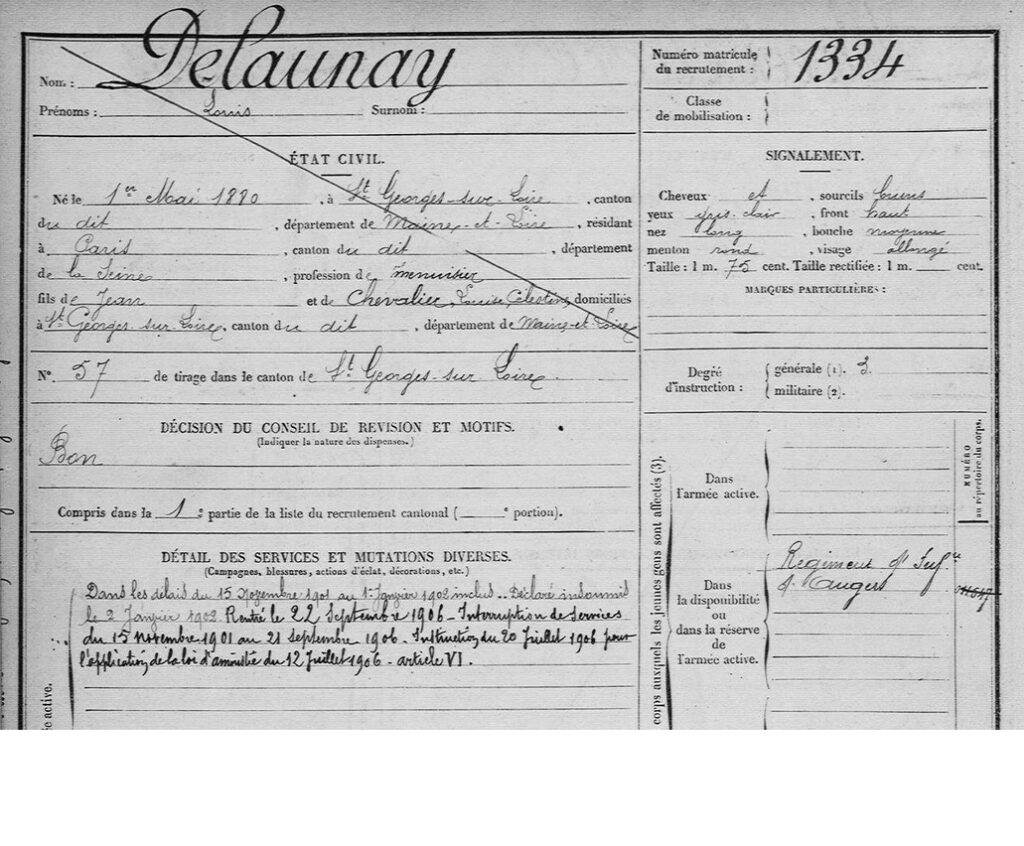 Nom : Delaunay
Prénoms : Louis Surnom :
Numéro matricule du recrutement : 1334
Classe de mobilisation :
ÉTAT CIVIL.
Né le 1er Mai 1880, à St Georges-sur-Loire, canton
du dit, département de Maine-et-Loire, résidant
à Paris, canton du dit, département
de la Seine, profession de menuisier
fils de Jean et de Chevalier, Louise Célestine, domiciliés
à St Georges-sur-Loire, canton du dit, département de Maine-et-Loire
N° 57 de tirage dans le canton de St Georges-sur Loire.
SIGNALEMENT.
Cheveux et, sourcils bruns
yeux gris-clair, front haut
nez long, bouche moyenne
menton rond, visage allongé
Taille : 1 m. 75 cent. Taille rectifiée : 1 m. cent.
MARQUES PARTICULIÈRES :
Degré d'instruction :
générale (1). 3.
militaire (2).
DÉCISION DU CONSEIL DE REVISION ET MOTIFS.
(Indiquer la nature des dispenses.)
Bon
Compris dans la 1e partie de la liste du recrutement cantonal ( e portion).
DÉTAIL DES SERVICES ET MUTATIONS DIVERSES.
(Campagnes, blessures, actions d'éclat, décorations, etc.)
Dans les délais du 15 Novembre 1901 au 1er Janvier 1902 inclus.. Déclaré insoumis
le 2 Janvier 1902. Rentré le 22 Septembre 1906 - Interruption de Services
du 15 novembre 1901 au 21 septembre 1906. Instruction du 20 Juillet 1906 pour
l'application de la loi d'amnistie du 12 Juillet 1906 - article VI.
ée active.
corps auxquels les jeunes gens sont affectés (3).
Dans
l'armée active.
NUMÉRO
au répertoire du corps.
Dans
la disponibilité
ou
dans la réserve
de
l'armée active.
Régiment d'Infie
d'Angers